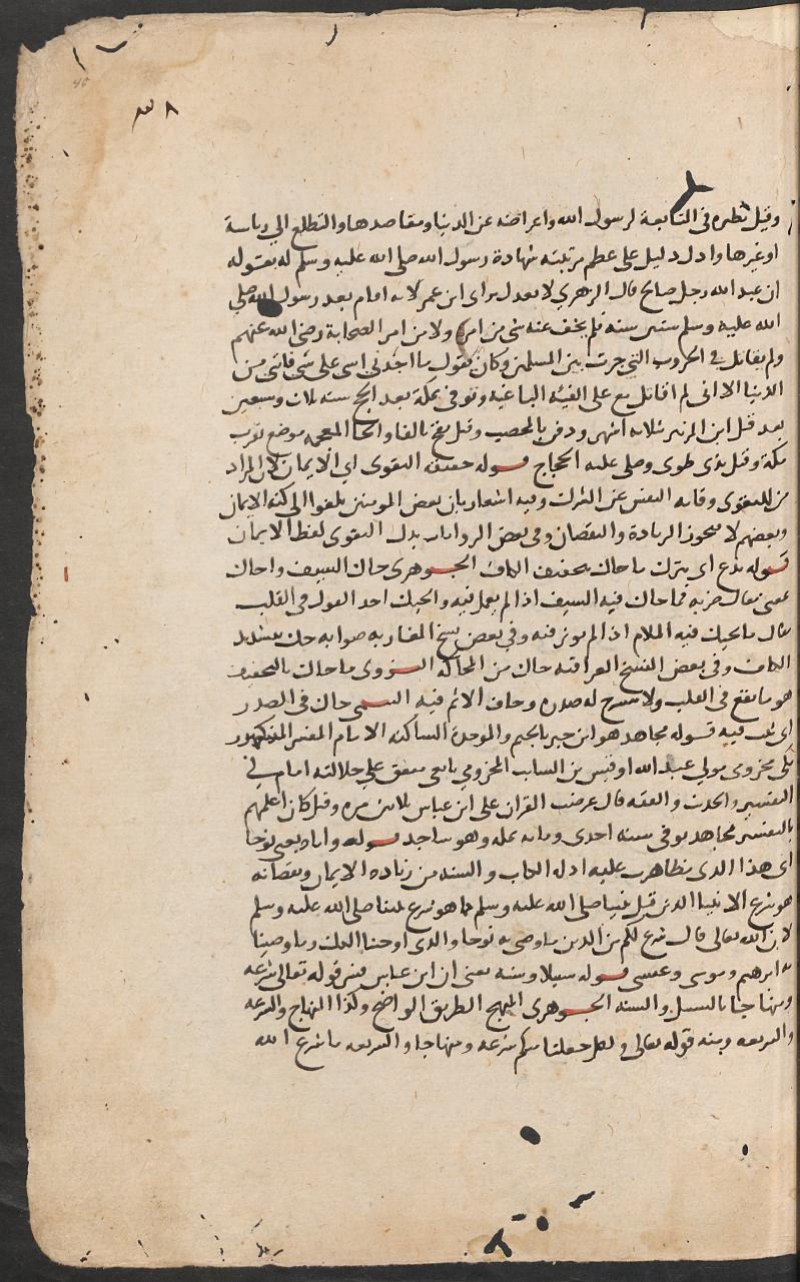 وقل نظيره فى المتابعة لرسول الله واعراضه عن الدنيا ومقاصدها والتطلع الي رياسة
او غيرها وادل دليل على عظم مرتبته شهادة رسول الله صلى الله عليه وسلم له بقوله
ان عبد الله رجل صالح قال الزهري لا يعدل براى ابن عمر لانه اقام بعد رسول الله صلي
الله عليه وسلم ستين سنه فلم يخف عنه شى من امره ولا من امر الصحابة رضى الله عنهم
ولم يقاتل في الحروب التي جرت بين المسلمين وكان يقول ما اجدنى اسى على شى فاتنى من
الدنيا الا انى لم اقاتل مع على الفيئه الباغيه وتوفى بمكة بعد الحج سنه ثلاث وسبعين
بعد قتل ابن الزبير بثلاثه اشهر ودفن بالمحصب وقيل بفخ بالفا والخا المعجمه موضع بقرب
مكة وقيل بذى طوى وصلى عليه الحجاج قوله حقيقه التقوى اي الايمان لان المراد
من التقوى وقايه النفس عن الشرك وفيه اشعار بان بعض المومنين بلغوا الى كنه الايمان
وبعضهم لا فتجوز الزيادة والنقصان وفى بعض الروايات بدل التقوى لفظ الايمان
قوله يدع اى يترك ما حاك بتخفيف الكاف الجوهرى حاك السيف واحاك
بمعنى يقال ضربه فما حاك فيه السيف اذا لم يعمل فيه والحيك اخذ القول فى القلب
يقال ما يحيك فيه الملام اذا لم يوثر فيه وفي بعض نسخ المغاربه صوابه حك بتشديد
الكاف وفى بعض النسخ العراقيه حاك من المحاكة النووى ما حاك بالتخفيف
هو ما يقع فى القلب ولا ينشرح له صدره وخاف الاثم فيه التيمى حاك فى الصدر
اى ثبت فيه قوله مجاهد هو ابن جبر بالجيم والموحدة الساكنه الامام المفسر المشهور
مكى مخزومى مولي عبد الله او قيس بن السايب المخزومي تابعى متفق علي جلالته امام في
التفسير والحديث والفقه قال عرضت القران على ابن عباس ثلاثين مره وقيل كان اعلمهم
بالتفسير مجاهد توفى سنه احدى ومايه بمكه وهو ساجد قوله واياه يعنى نوحا
اى هذا الذى تظاهرت عليه ادله الكتاب والسنه من زياده الايمان ونقصانه
هو شرع الانبيا الذين قبل نبينا صلى الله عليه وسلم كما هو شرع نبينا صلى الله عليه وسلم
لان الله تعالى قال شرع لكم من الدين ما وصى به نوحا والذى اوحينا اليك وما وصينا
به ابرهيم وموسى وعيسى قوله سبيلا وسنه يعنى ان ابن عباس فسر قوله تعالى شرعه
ومنهاجا بالسبيل والسنه الجوهرى المنهج الطريق الواضح وكذا المنهاج والشرعه
والشريعه ومنه قوله تعالى ولكل جعلنا منكم شرعه ومنهاجا والشريعه ما شرع الله